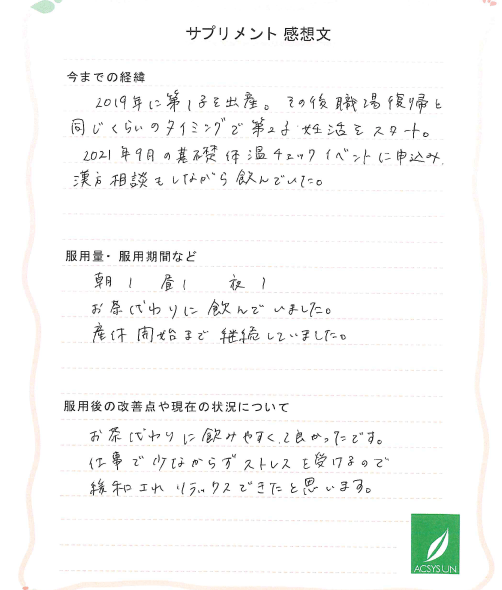 サプリメント 感想文
今までの経緯
2019年に第1子を出産。その後職場復帰と
同じくらいのタイミングで第2子妊活をスタート。
2021年9月の基礎体温チェックイベントに申込み、
漢方相談もしながら飲んでいた。
服用量・服用期間など
朝1 昼1 夜1
お茶代わりに飲んでいました。
産休開始まで継続していました。
服用後の改善点や現在の状況について
お茶代わりに飲みやすくて良かったです。
仕事で少なからずストレスを受けるので
緩和されリラックスできたと思います。
ACSYSUN